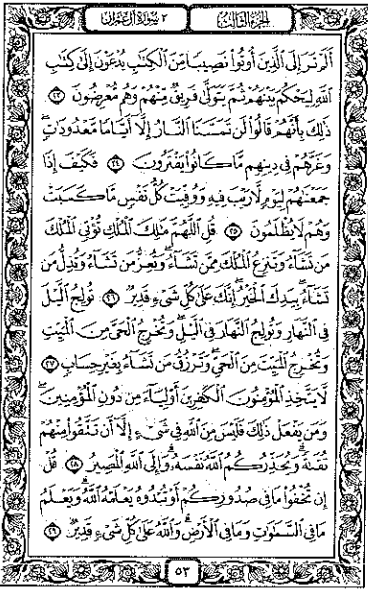 الجزء الثالث
٣ سورة آل عمران
أَلَمْ تَرَ إِلَى ٱلَّذِينَ أُوتُوا۟ نَصِيبًا مِّنَ ٱلْكِتَٰبِ يُدْعَوْنَ إِلَىٰ كِتَٰبِ
ٱللَّهِ لِيَحْكُمَ بَيْنَهُمْ ثُمَّ يَتَوَلَّىٰ فَرِيقٌ مِّنْهُمْ وَهُم مُّعْرِضُونَ ٢٣
ذَٰلِكَ بِأَنَّهُمْ قَالُوا۟ لَن تَمَسَّنَا ٱلنَّارُ إِلَّآ أَيَّامًا مَّعْدُودَٰتٍ
وَغَرَّهُمْ فِى دِينِهِم مَّا كَانُوا۟ يَفْتَرُونَ ٢٤ فَكَيْفَ إِذَا
جَمَعْنَٰهُمْ لِيَوْمٍ لَّا رَيْبَ فِيهِ وَوُفِّيَتْ كُلُّ نَفْسٍ مَّا كَسَبَتْ
وَهُمْ لَا يُظْلَمُونَ ٢٥ قُلِ ٱللَّهُمَّ مَٰلِكَ ٱلْمُلْكِ تُؤْتِى ٱلْمُلْكَ
مَن تَشَآءُ وَتَنزِعُ ٱلْمُلْكَ مِمَّن تَشَآءُ وَتُعِزُّ مَن تَشَآءُ وَتُذِلُّ مَن
تَشَآءُ بِيَدِكَ ٱلْخَيْرُ إِنَّكَ عَلَىٰ كُلِّ شَىْءٍ قَدِيرٌ ٢٦ تُولِجُ ٱلَّيْلَ
فِى ٱلنَّهَارِ وَتُولِجُ ٱلنَّهَارَ فِى ٱلَّيْلِ وَتُخْرِجُ ٱلْحَىَّ مِنَ ٱلْمَيِّتِ
وَتُخْرِجُ ٱلْمَيِّتَ مِنَ ٱلْحَىِّ وَتَرْزُقُ مَن تَشَآءُ بِغَيْرِ حِسَابٍ ٢٧
لَّا يَتَّخِذِ ٱلْمُؤْمِنُونَ ٱلْكَٰفِرِينَ أَوْلِيَآءَ مِن دُونِ ٱلْمُؤْمِنِينَ
وَمَن يَفْعَلْ ذَٰلِكَ فَلَيْسَ مِنَ ٱللَّهِ فِى شَىْءٍ إِلَّآ أَن تَتَّقُوا۟ مِنْهُمْ
تُقَىٰةً وَيُحَذِّرُكُمُ ٱللَّهُ نَفْسَهُۥ وَإِلَى ٱللَّهِ ٱلْمَصِيرُ ٢٨ قُلْ
إِن تُخْفُوا۟ مَا فِى صُدُورِكُمْ أَوْ تُبْدُوهُ يَعْلَمْهُ ٱللَّهُ وَيَعْلَمُ
مَا فِى ٱلسَّمَٰوَٰتِ وَمَا فِى ٱلْأَرْضِ وَٱللَّهُ عَلَىٰ كُلِّ شَىْءٍ قَدِيرٌ ٢٩
٥٣